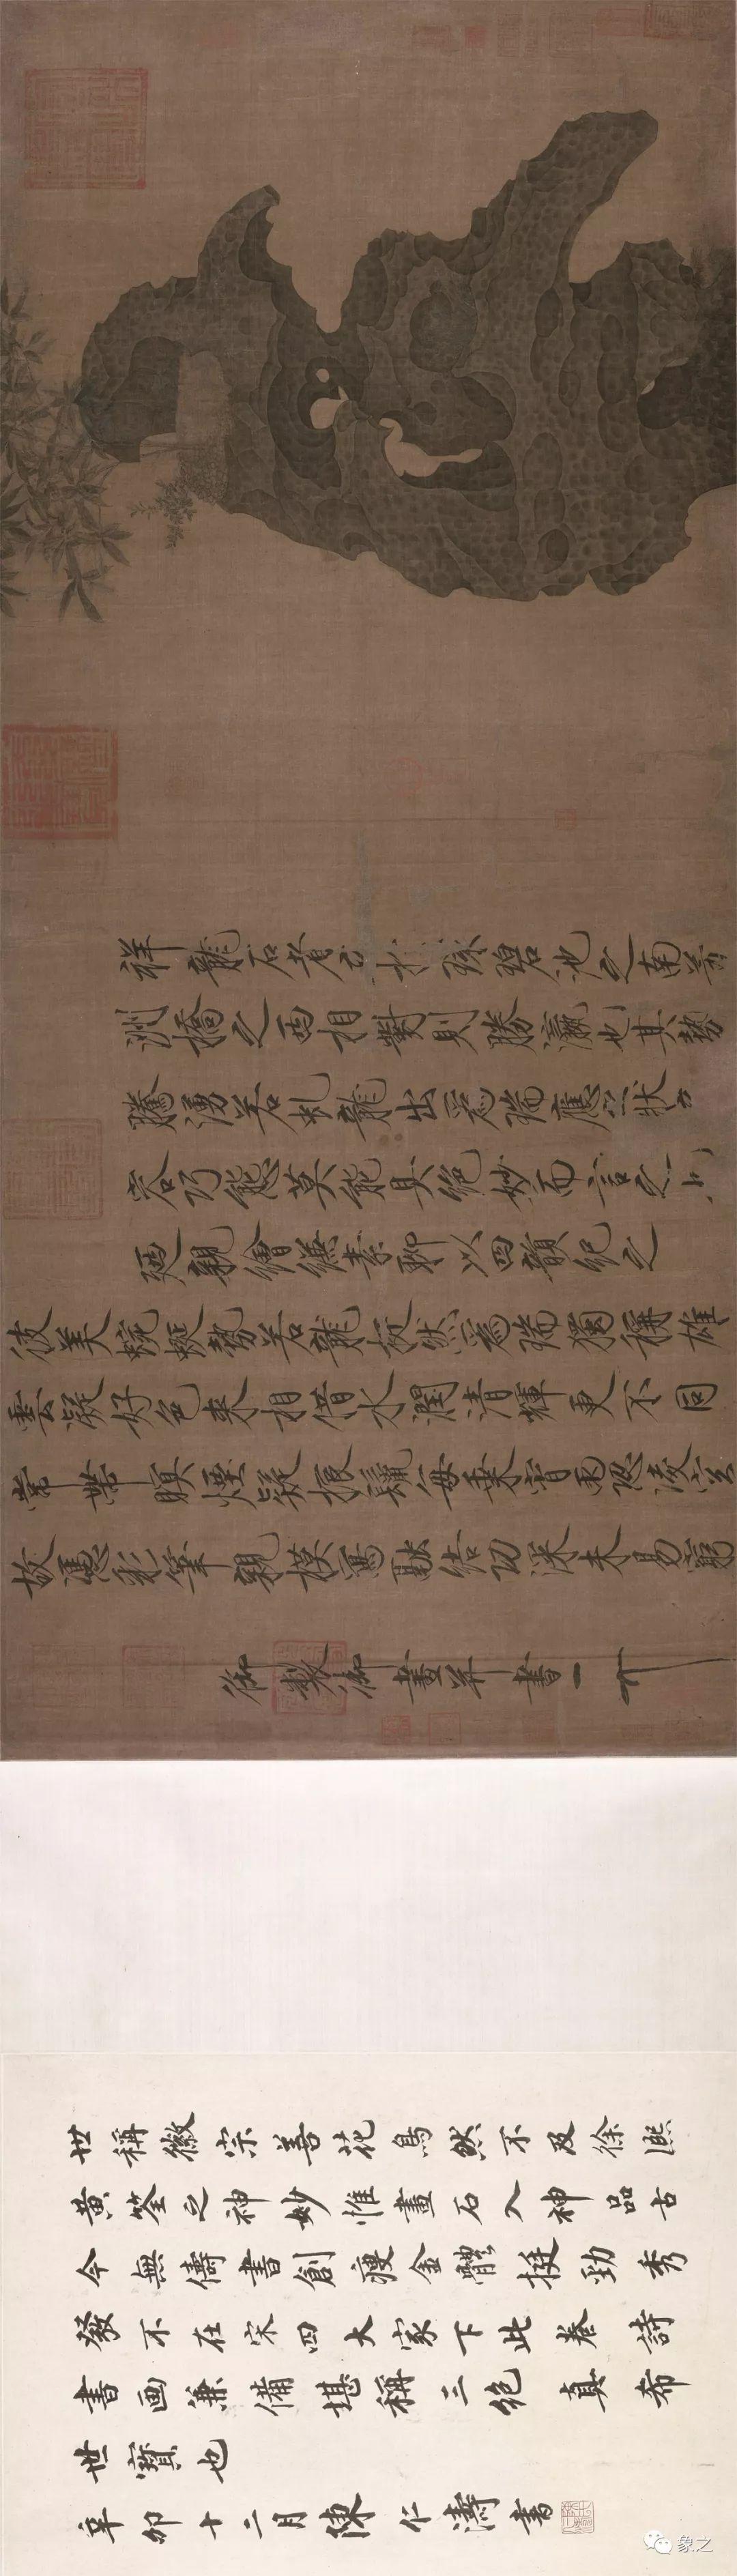 祥龍石者立於環碧池之南芳
洲橋之西相對則勝瀛也其勢
騰湧若虬龍出為瑞應之狀奇
容巧態莫能具絕妙而言之也
廼親繪縑素聊以四韻紀之
彼美蜿蜒勢若龍挺然為瑞獨稱雄
雲凝好色來相借水潤清輝更不同
常帶暝煙疑振鬣每乘宵雨恐凌空
故憑彩筆親模寫融結功深未易窮
御製御畫并書
世稱徽宗善花鳥然不及徐熙
黃筌之神妙惟畫石入神品古
今無儔書創瘦金體挺勁秀
發不在宋四大家下此卷詩
書画兼備堪稱三絕真希
世寶也
辛卯十二月陳仁濤書
象之